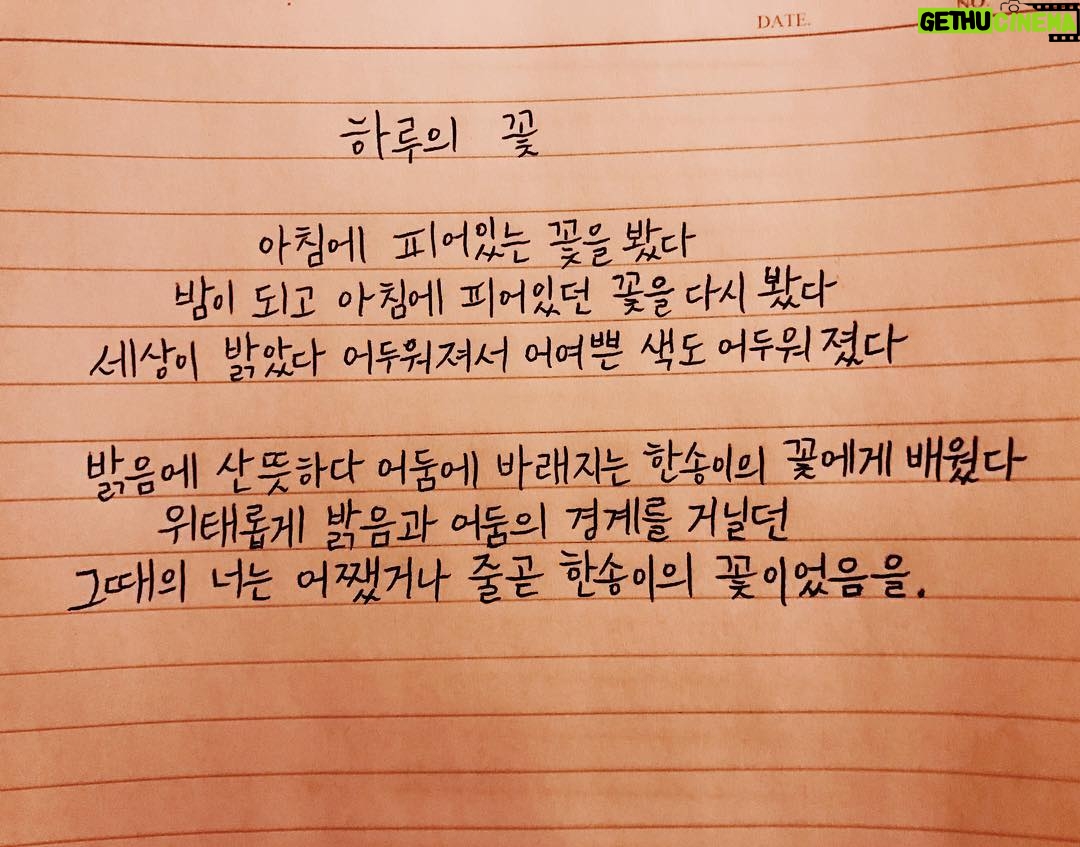 DATE.
NO.
GETHUCINEMA
하루의 꽃
아침에 피어있는 꽃을 봤다
밤이 되고 아침에 피어있던 꽃을 다시 봤다
세상이 밝았다 어두워져서 어여쁜 색도 어두워졌다
밝음에 산뜻하다 어둠에 바래지는 한송이의 꽃에게 배웠다
위태롭게 밝음과 어둠의 경계를 거닐던
그때의 너는 어쨌거나 줄곧 한송이의 꽃이었음을.